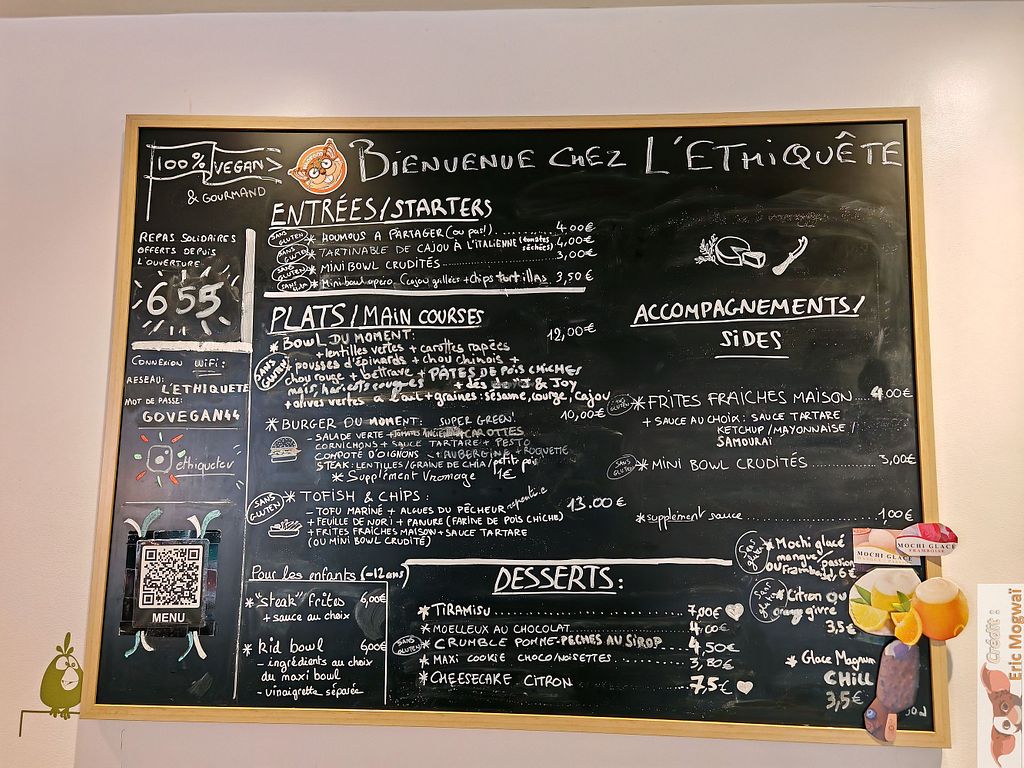 100% VEGAN
& GOURMAND
BIENVENUE CHEZ L'ETHIQUÊTE
REPAS SOLIDAIRES
OFFERTS DEPUIS
L'OUVERTURE
655
CONNEXION WIFI:
RESEAU:
L'ETHIQUETE
MOT DE PASSE:
GOVEGAN44
ethiquetev
MENU
ENTRÉES/STARTERS
SANS GLUTEN * HOUMOUS A PARTAGER (ou pas!) 4.00€
SANS GLUTEN * TARTINABLE DE CAJOU À L'ITALIENNE (tomates séchées) 4,00€
SANS GLUTEN * MINI BOWL CRUDITÉS 3,00€
* Mini bowl apéro Cajou grillées + chips tortillas 3,50€
PLATS/MAIN COURSES
* BOWL DU MOMENT: 12,00€
SANS GLUTEN
+ lentilles vertes + carottes rapées
+ pousses d'épinards + chou chinois +
chou rouge + bettrave + PÂTES DE POIS CHICHES
maïs, haricots rouges + dés J & Joy
+ olives vertes à l'ail + graines: sésame, courge, cajou
* BURGER DU MOMENT: SUPER GREEN! 10,00€
- SALADE VERTE + CAROTTES
CORNICHONS + SAUCE TARTARE + PESTO
COMPOTÉ D'OIGNONS + AUBERGINE + ROQUETTE
STEAK: LENTILLES/GRAINE DE CHIA/petits pois
* Supplément Vromage 1€
SANS GLUTEN * TOFISH & CHIPS: 13.00€
- TOFU MARINÉ + ALGUES DU PÊCHEUR
+ FEUILLE DE NORI + PANURE (FARINE DE POIS CHICHE)
+ FRITES FRAÎCHES MAISON + SAUCE TARTARE
(OU MINI BOWL CRUDITÉ)
ACCOMPAGNEMENTS/
SIDES
SANS GLUTEN * FRITES FRAÎCHES MAISON 4.00€
+ SAUCE AU CHOIX: SAUCE TARTARE
KETCHUP/MAYONNAISE/
SAMOURAÏ
SANS GLUTEN * MINI BOWL CRUDITÉS 3,00€
* supplément sauce 1,00€
Pour les enfants (-12ans)
* "steak" frites 6,00€
+ sauce au choix
* kid bowl 6,00€
- ingrédients au choix
du maxi bowl
- vinaigrette séparée
DESSERTS:
* TIRAMISU 7,00€
* MOELLEUX AU CHOCOLAT 4,00€
SANS GLUTEN * CRUMBLE POMME-PECHES AU SIROP 4,50€
* MAXI COOKIE CHOCO/NOISETTES 3,80€
* CHEESECAKE CITRON 7,5€
Sans gluten * Mochi glacé
mangue/passion
ou Framboise 6€
Sans gluten * Citron ou
orange givré
3,5€
* Glace Magnum
CHILL
3,5€
MOCHI GLACÉ
MOCHI GLACÉ
FRAMBOISE
Crédit :
Eric Mogwaï